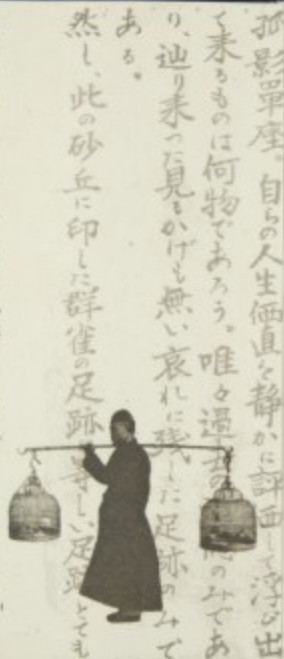 孤影單座。自らの人生価直を静かに評価して浮び出
て来るものは何物であろう。唯々過去の のみであ
り、辿り来った見るかげも無い哀れに残した足跡のみで
ある。
然し、此の砂丘に印した群雀の足跡 等しい足跡とても